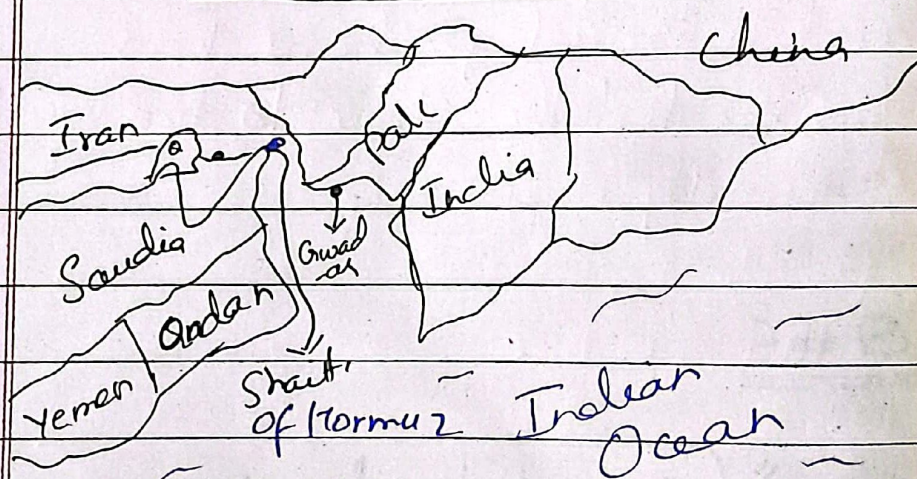 China
Iran
Pak
India
Saudia
Gwad
ar
Yemen
Strait
Of Hormuz
Indian
Ocean